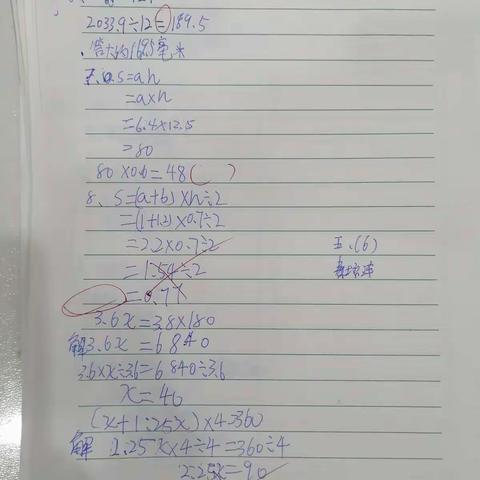 2033.9÷12=189.5
S=ah
=a×h
=6.4×12.5
=80
80×0.6=48( )
8、S=(a+b)×h÷2
=(1+1.2)×0.7÷2
=2.2×0.7÷2
=1.54÷2
=0.77
五.(6)
3.6x=3.8×180
解3.6x=6840
3.6×x÷3.6=6840÷3.6
(x+1.25x)×4=360
解 2.25x×4÷4=360÷4
2.25x=90